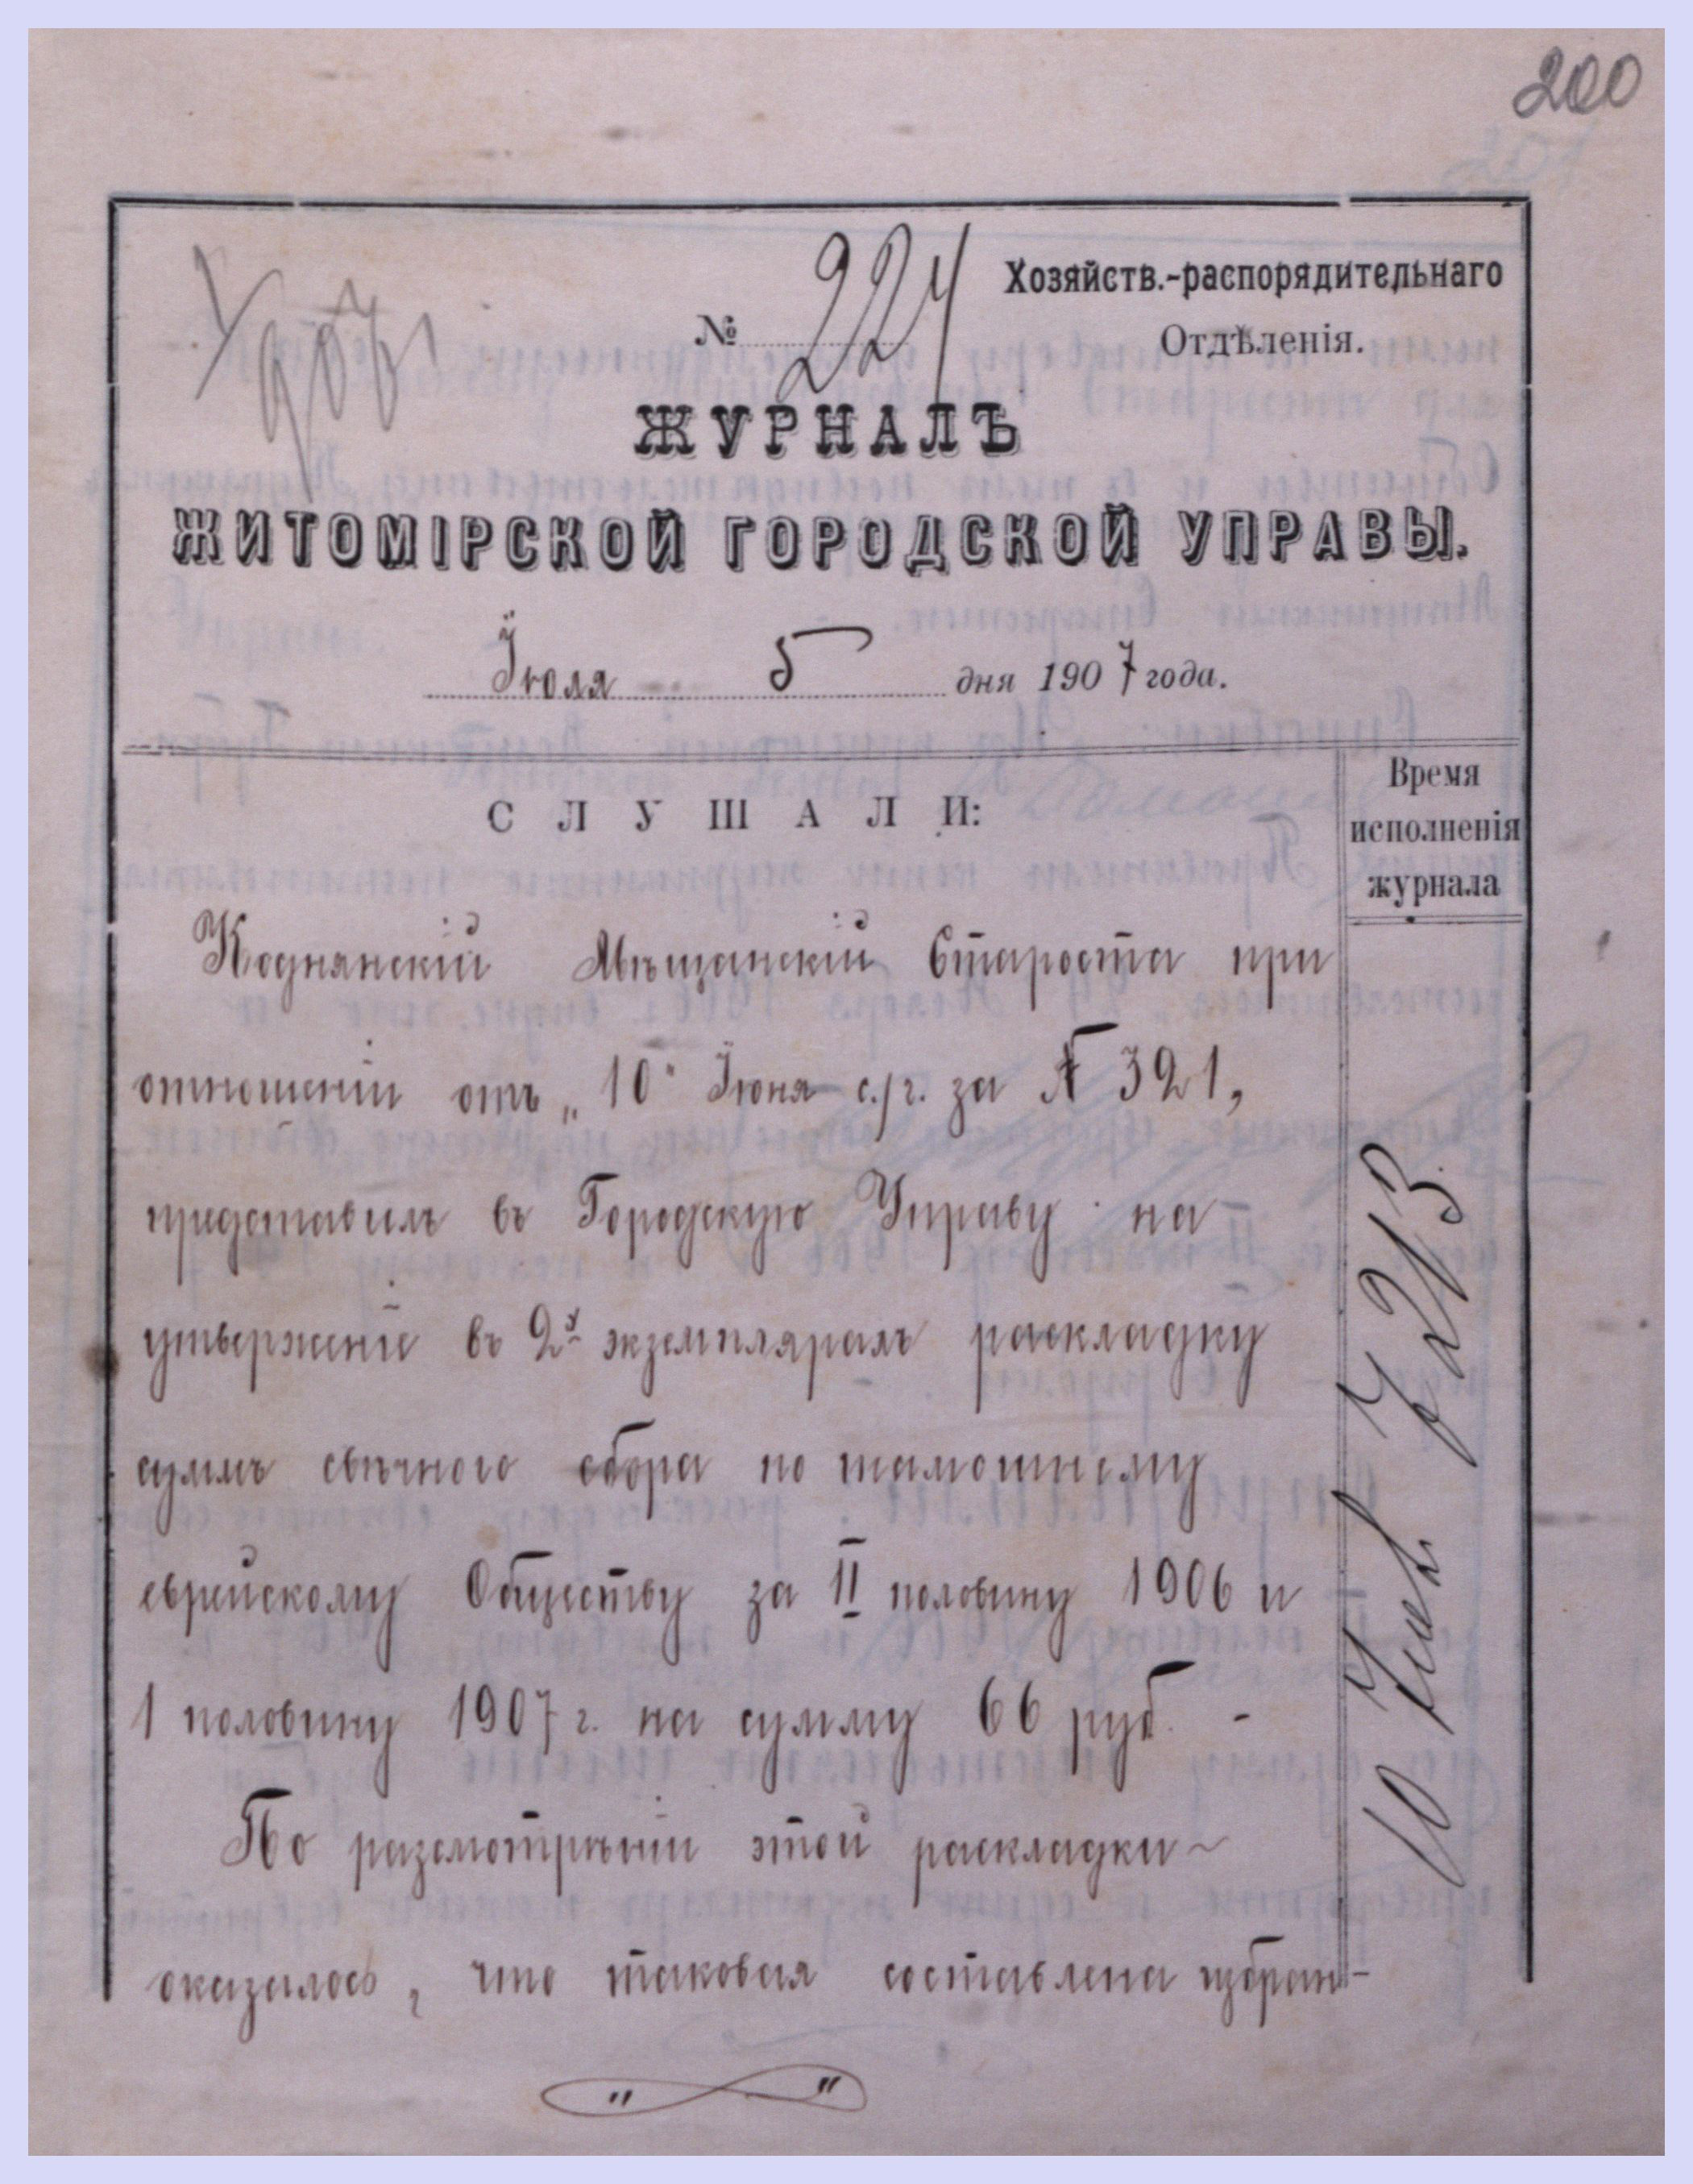 200
Хозяйств.-распорядительнаго
№ 224
Отдѣленія.
ЖУРНАЛЪ
ЖИТОМІРСКОЙ ГОРОДСКОЙ УПРАВЫ.
Іюля 5 дня 1907 года.
СЛУШАЛИ:
Время
исполненія
журнала
Коднянскій Мѣщанскій Староста при
отношеніи отъ „10" Іюня с./г. за № 321,
представилъ въ Городскую Управу на
утвержение въ 2х экземплярахъ раскладку
суммъ свѣчного сбора по тамошнему
еврейскому Обществу за II половину 1906 и
1 половину 1907 г. на сумму 66 руб. -
По разсмотрѣніи этой раскладки
оказалось, что таковая составлена избран-
10 Іюля 7213